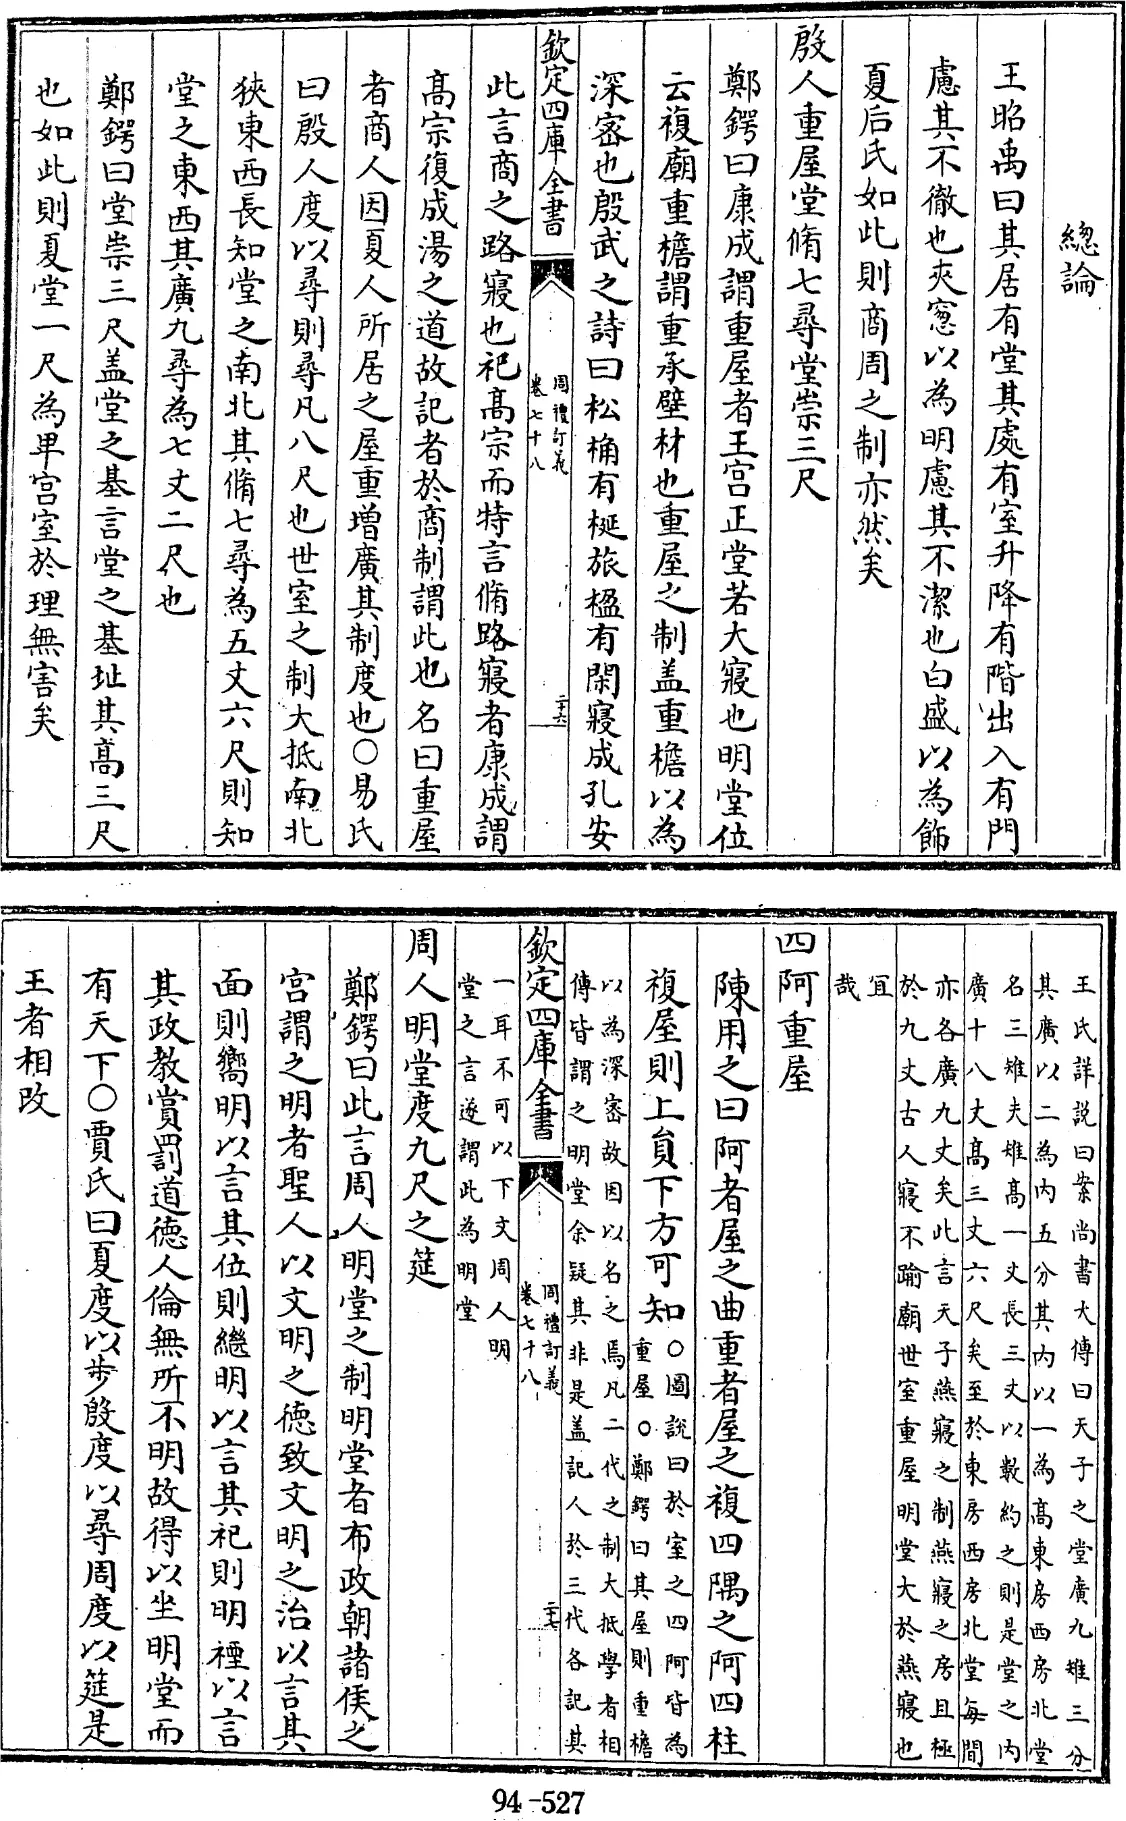 總論
王昭禹曰其居有堂其處有室升降有階出入有門
慮其不徹也夾窻以為明慮其不潔也白盛以為飾
夏后氏如此則商周之制亦然矣
殷人重屋堂脩七尋堂崇三尺
鄭鍔曰康成謂重屋者王宫正堂若大寢也明堂位
云複廟重檐謂重承壁材也重屋之制盖重檐以為
深宻也殷武之詩曰松桷有梴旅楹有閑寢成孔安
欽定四庫全書
周禮訂義
卷七十八
二十六
此言商之路寢也祀髙宗而特言脩路寢者康成謂
髙宗復成湯之道故記者於商制謂此也名曰重屋
者商人因夏人所居之屋重増廣其制度也○易氏
曰殷人度以尋則尋凡八尺也世室之制大抵南北
狹東西長知堂之南北其脩七尋為五丈六尺則知
堂之東西其廣九尋為七丈二尺也
鄭鍔曰堂崇三尺盖堂之基言堂之基址其髙三尺
也如此則夏堂一尺為卑宫室於理無害矣
王氏詳説曰案尚書大傳曰天子之堂廣九雉三分
其廣以二為内五分其内以一為髙東房西房北堂
名三雉夫雉髙一丈長三丈以數約之則是堂之内
廣十八丈髙三丈六尺矣至於東房西房北堂每間
亦各廣九丈矣此言天子燕寢之制燕寢之房且極
於九丈古人寢不踰廟世室重屋明堂大於燕寢也
宜
哉
四阿重屋
陳用之曰阿者屋之曲重者屋之複四隅之阿四柱
複屋則上負下方可知○圖説曰於室之四阿皆為
重屋○鄭鍔曰其屋則重檐
以為深宻故因以名之焉凡二代之制大抵學者相
傳皆謂之明堂余疑其非是盖記人於三代各記其
欽定四庫全書
周禮訂義
卷七十八
二十七
一耳不可以下文周人明
堂之言遂謂此為明堂
周人明堂度九尺之筵
鄭鍔曰此言周人明堂之制明堂者布政朝諸侯之
宫謂之明者聖人以文明之徳致文明之治以言其
面則嚮明以言其位則繼明以言其祀則明禋以言
其政教賞罰道徳人倫無所不明故得以坐明堂而
有天下○賈氏曰夏度以步殷度以尋周度以筵是
王者相改
94-527